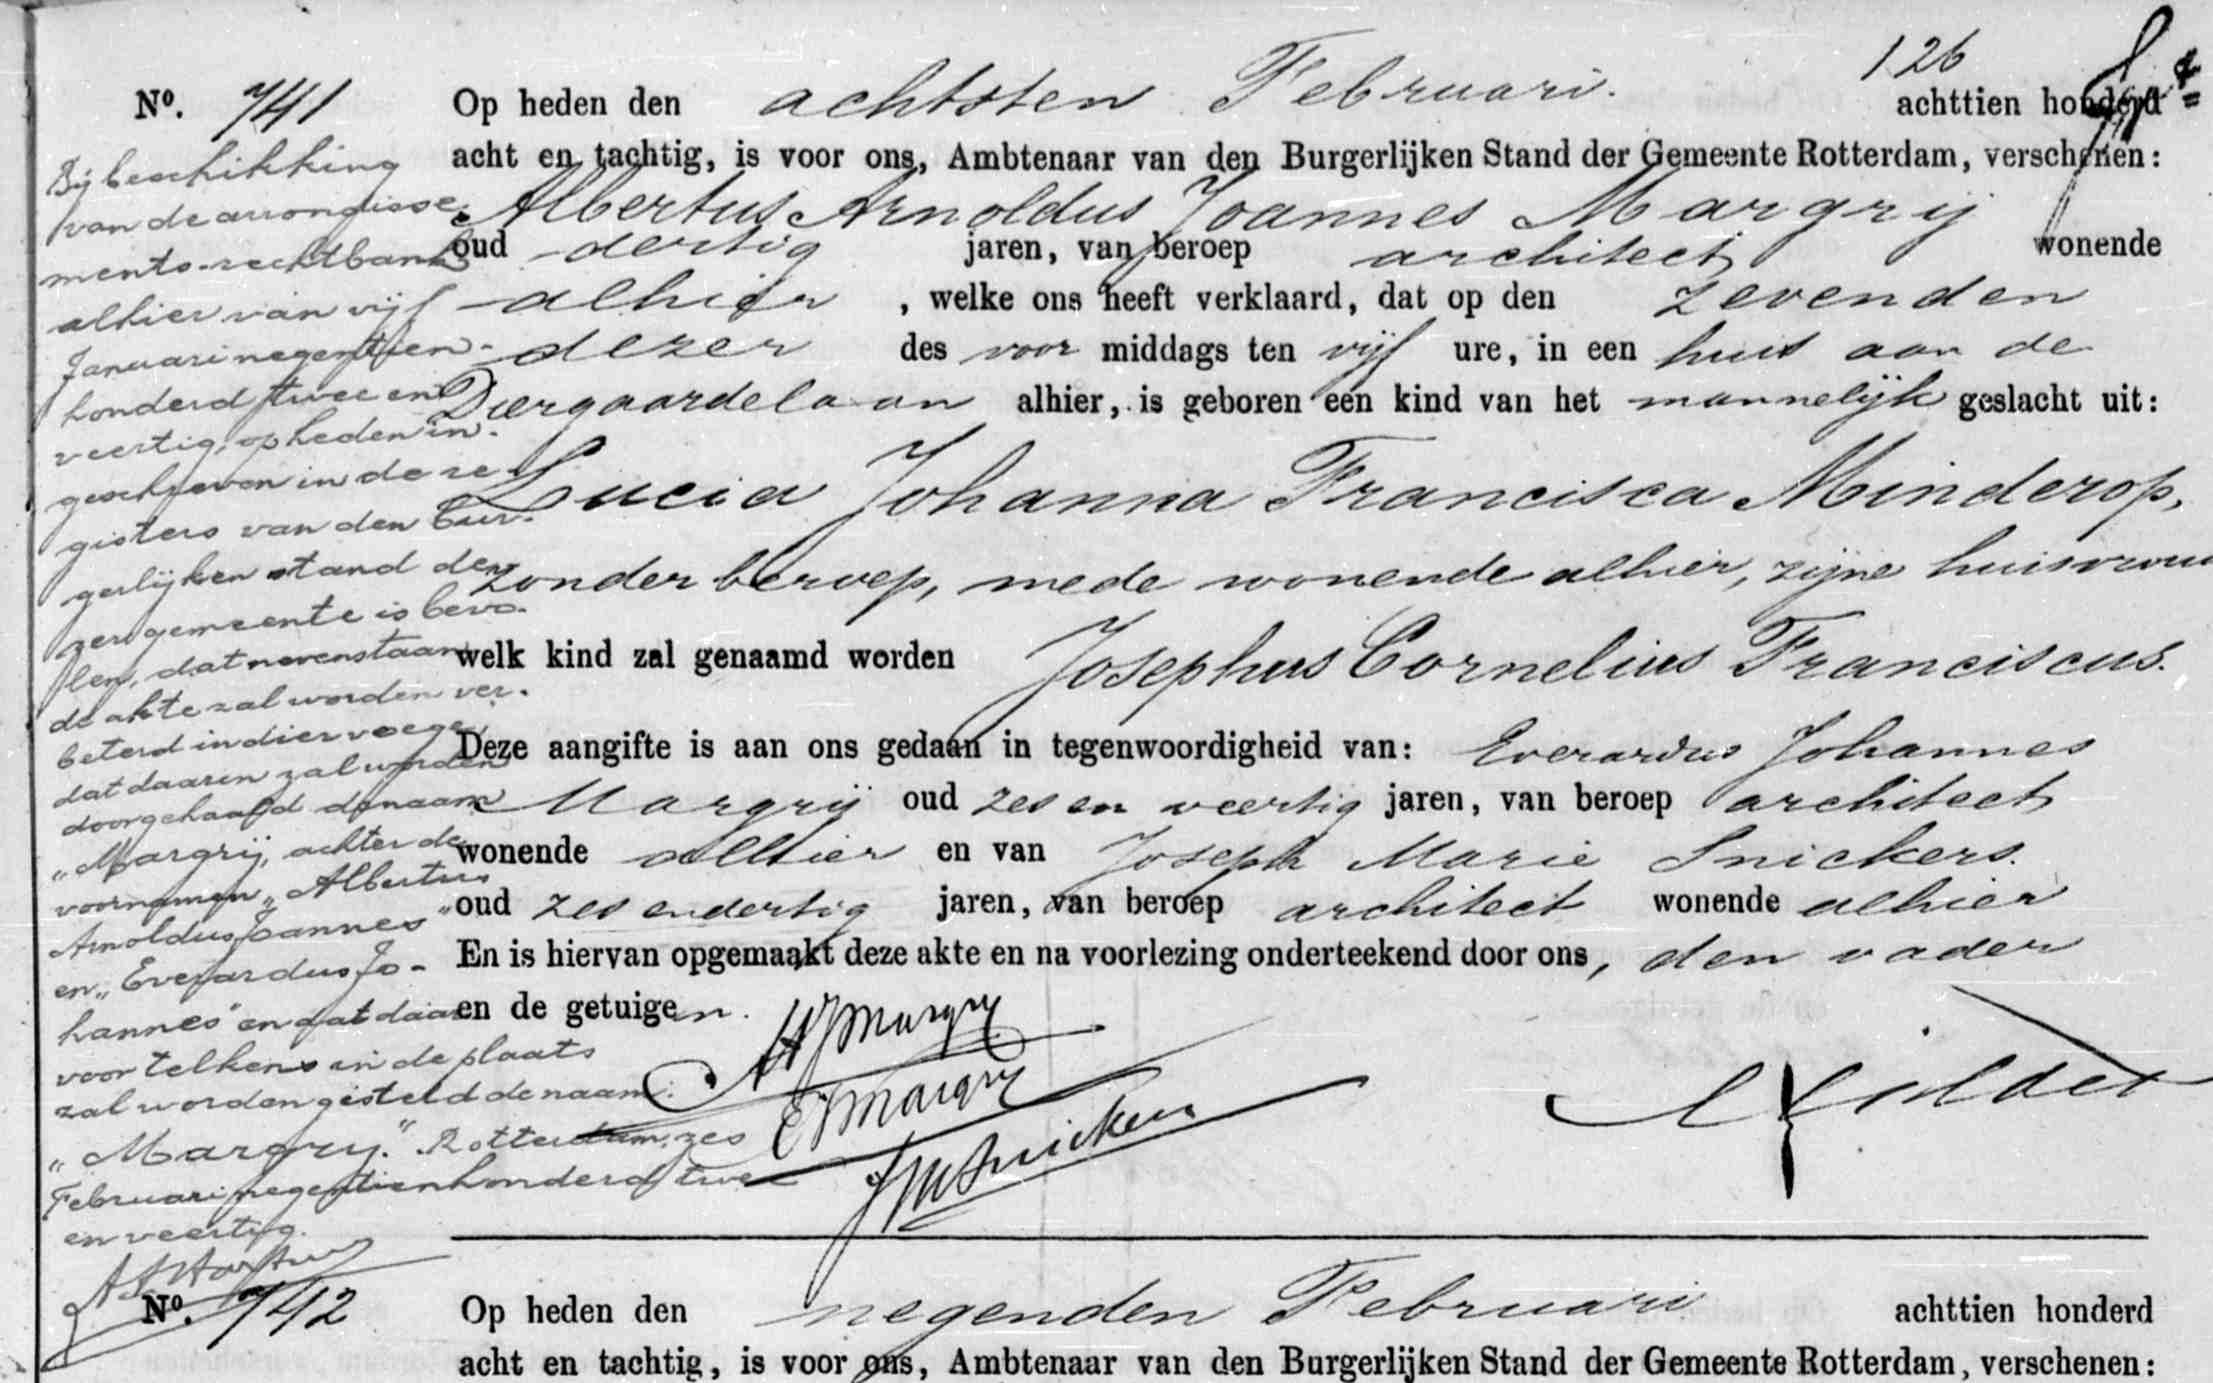 126
Nº. 741
Op heden den achtsten Februari. achttien honderd
acht en tachtig, is voor ons, Ambtenaar van den Burgerlijken Stand der Gemeente Rotterdam, verschenen:
Albertus Arnoldus Joannes Margrij
oud dertig jaren, van beroep architect wonende
alhier, welke ons heeft verklaard, dat op den zevenden
dezer des voor middags ten vijf ure, in een huis aan de
Diergaardelaan alhier, is geboren een kind van het mannelijk geslacht uit:
Lucia Johanna Francisca Minderop,
zonder beroep, mede wonende alhier, zijne huisvrouw
welk kind zal genaamd worden Josephus Cornelius Franciscus.
Deze aangifte is aan ons gedaan in tegenwoordigheid van: Everardus Johannes
Margrij oud zes en veertig jaren, van beroep architect
wonende alhier en van Joseph Marie Snickers.
oud zes en dertig jaren, van beroep architect wonende alhier
En is hiervan opgemaakt deze akte en na voorlezing onderteekend door ons, den vader
en de getuigen.
AJMargry
EJMargry
JMSnickers
Bij beschikking
van de arrondisse-
ments-rechtbank
alhier van vijf
Januari negentien-
honderd twee en
veertig, op heden in-
geschreven in de re-
gisters van den bur-
gerlijken stand de-
zer gemeente is bevo-
len, dat nevenstaan-
de akte zal worden ver-
beterd in dier voege,
dat daarin zal worden
doorgehaald de naam
"Margrij, achter de
voornamen "Albertus
Arnoldus Joannes"
en "Everardus Jo-
hannes" en dat daar-
voor telkens in de plaats
zal worden gesteld de naam:
"Margry." Rotterdam, zes
Februari negentienhonderd twee
en veertig.
Nº. 742
Op heden den negenden Februari achttien honderd
acht en tachtig, is voor ons, Ambtenaar van den Burgerlijken Stand der Gemeente Rotterdam, verschenen: